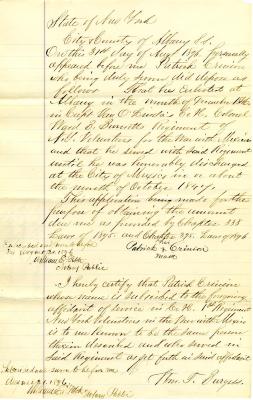 State of New York
City & County of Albany SS.
On this 31st day of Augt 1896 personally
appeared before me Patrick Crimion
who being duly sworn did depose as
follows That he enlisted at
Albany in the month of
in Capt. Co. K. Colonel
Ward B. Burnetts Regiment
N.Y. Volunteers for the War with Mexico
and that he served with said Regiment
until he was honorably discharged
at the City of Mexico in or about
the month of October 1847.
This application being made for the
purpose of obtaining the amount
due me as provided by Chapter 338
Laws of 1895 and Chapter 395 Laws of 1896
his
Patrick x Crimion
mark
Subscribed and sworn before
me August 31, 1896
William
Notary Public
I hereby certify that Patrick Crimion
whose name is subscribed to the foregoing
affidavit of service in Co. K. 1st Regiment
New York Volunteers in the War with Mexico
is to me known to be the same person
therein described and who served in
said Regiment as set forth in said affidavit
Subscribed and sworn to before me
August 31, 1896
Wm. F. Burgess
William
Notary Public